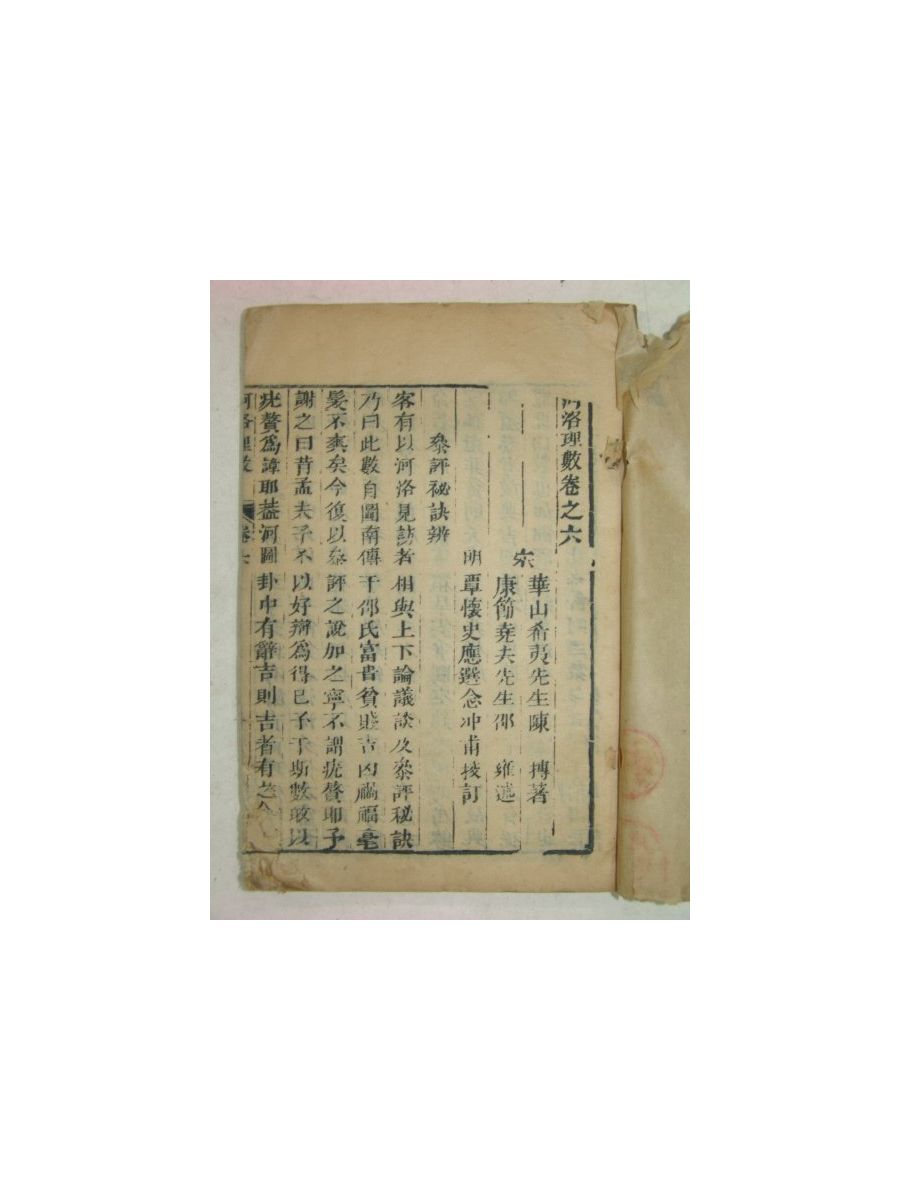 河洛理數卷之六
宋
華山希夷先生陳 摶著
康節堯夫先生邵 雍述
明
覃懷史應選念冲甫挍訂
叅評秘訣辨
客有以河洛見訪者相與上下論議談及叅評秘訣
乃曰此數自圖南傳于邵氏富貴貧賤吉凶禍福毫
髮不爽矣今復以叅評之說加之寧不謂疣贅耶予
謝之曰昔孟夫子不以好辯爲得已予于斯數敢以
疣贅爲諱耶葢河圖卦中有辭吉則吉者有之
河洛理數 卷六